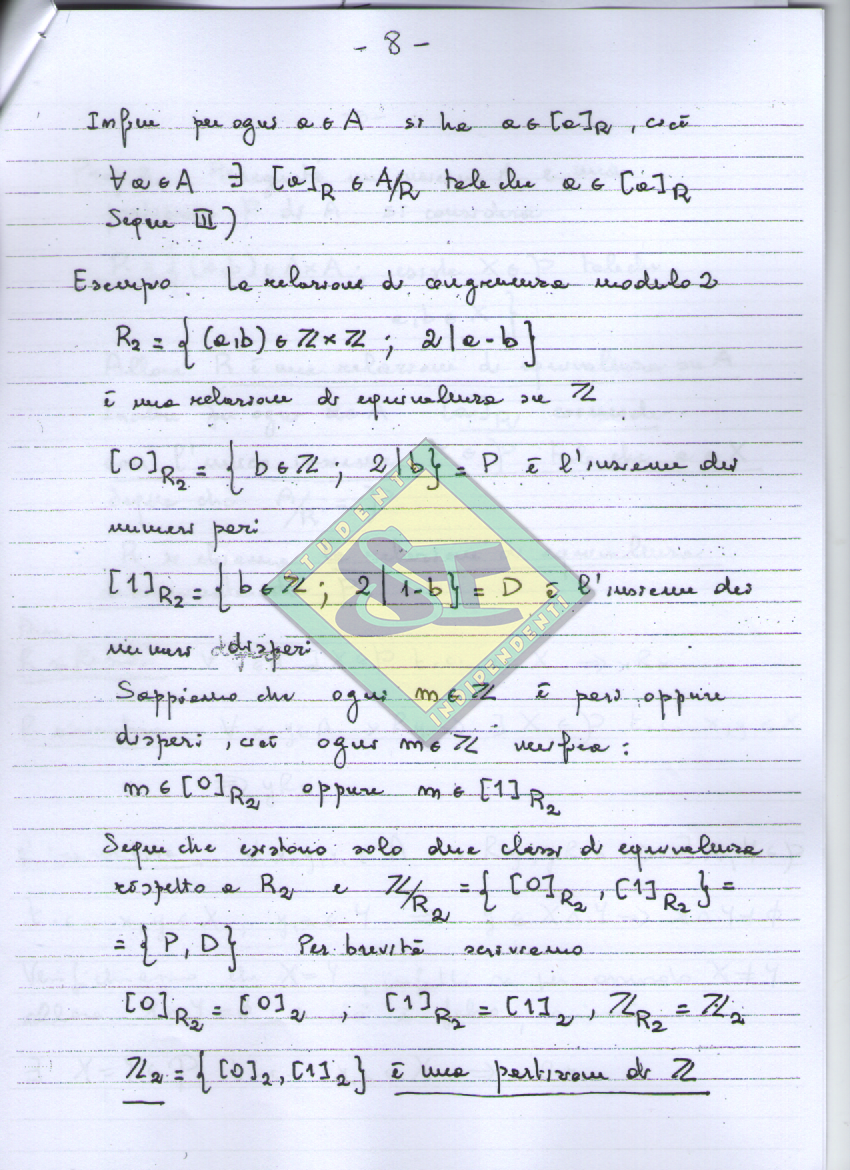 - 8 -
Infine per ogni a ∈ A si ha a ∈ [a]_R , cioè
∀a ∈ A ∃ [a]_R ∈ A/R tale che a ∈ [a]_R
Segue III)
Esempio. La relazione di congruenza modulo 2
R₂ = { (a,b) ∈ ℤ×ℤ ; 2 | a-b }
è una relazione di equivalenza su ℤ
[0]_R₂ = { b ∈ ℤ ; 2 | b } = P è l'insieme dei
numeri pari
[1]_R₂ = { b ∈ ℤ ; 2 | 1-b } = D è l'insieme dei
numeri dispari
Sappiamo che ogni m ∈ ℤ è pari oppure
dispari , cioè ogni m ∈ ℤ verifica :
m ∈ [0]_R₂ oppure m ∈ [1]_R₂
Segue che esistono solo due classi di equivalenza
rispetto a R₂ e ℤ/R₂ = { [0]_R₂ , [1]_R₂ } =
= { P, D } Per brevità scriviamo
[0]_R₂ = [0]₂ , [1]_R₂ = [1]₂ , ℤ_R₂ = ℤ₂
ℤ₂ = { [0]₂, [1]₂ } è una partizione di ℤ
STUDENTI
SI
INDIPENDENTI